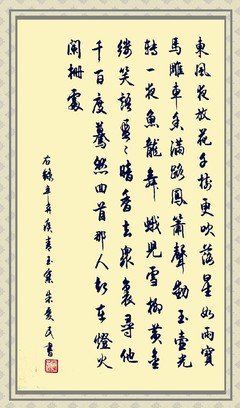 東風夜放花千樹更吹落星如雨寶
馬雕車香滿路鳳簫聲動玉壺光
轉一夜魚龍舞蛾兒雪柳黃金
縷笑語盈盈暗香去衆裏尋他
千百度驀然回首那人却在燈火
闌珊處
右錄辛弃疾青玉案朱愛民書